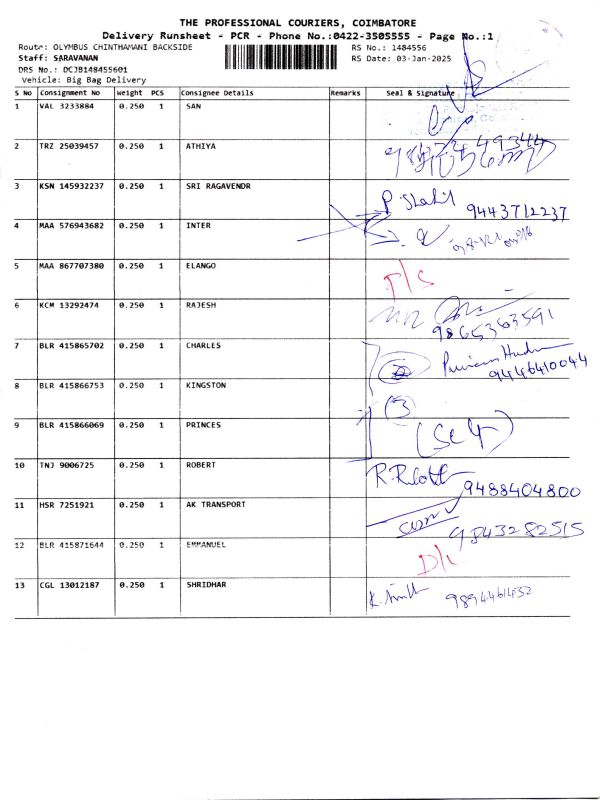 THE PROFESSIONAL COURIERS, COIMBATORE
Delivery Runsheet - PCR - Phone No.:0422-3505555 - Page No.:1
Route: OLYMBUS CHINTHAMANI BACKSIDE
RS No.: 1484556
Staff: SARAVANAN
RS Date: 03-Jan-2025
DRS No.: DCJB148455601
Vehicle: Big Bag Delivery
S No Consignment No Weight PCS Consignee Details Remarks Seal & Signature
1 VAL 3233884 0.250 1 SAN
2 TRZ 25039457 0.250 1 ATHIYA
3 KSN 145932237 0.250 1 SRI RAGAVENDR
9443712237
4 MAA 576943682 0.250 1 INTER
5 MAA 867707380 0.250 1 ELANGO
6 KCM 13292474 0.250 1 RAJESH
9865363591
7 BLR 415865702 0.250 1 CHARLES
9446410044
8 BLR 415866753 0.250 1 KINGSTON
(3)
9 BLR 415866069 0.250 1 PRINCES
(Self)
10 TNJ 9006725 0.250 1 ROBERT
9488404800
11 HSR 7251921 0.250 1 AK TRANSPORT
9843282515
12 BLR 415871644 0.250 1 EMMANUEL
D/L
13 CGL 13012187 0.250 1 SHRIDHAR